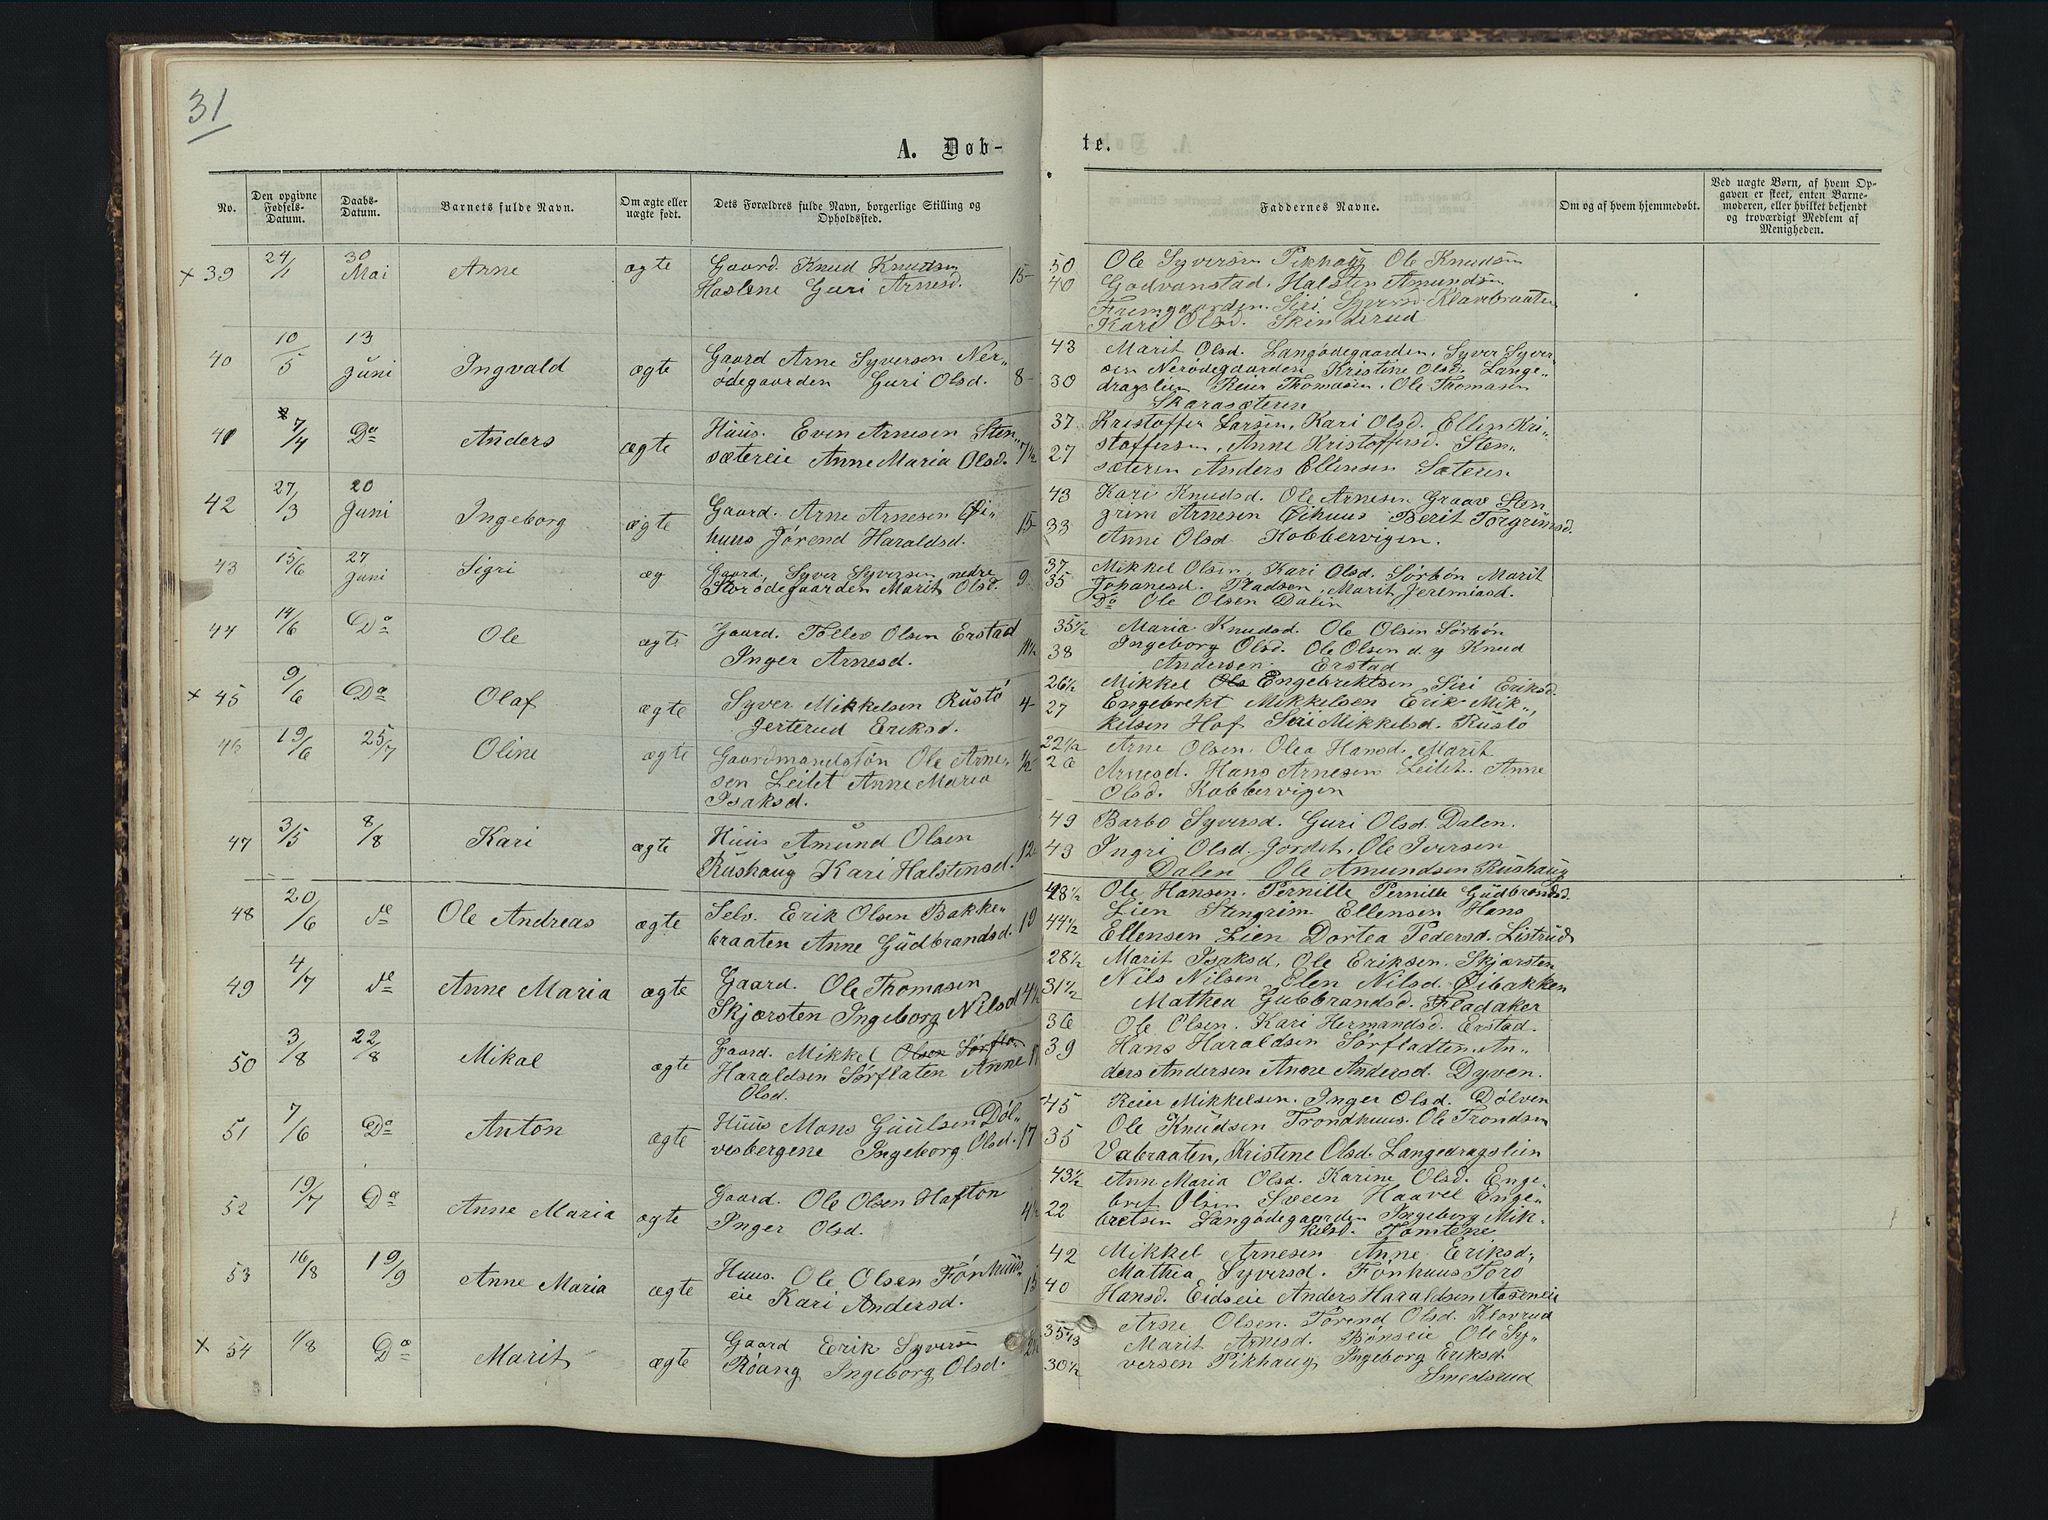 31
A. Døb-
te.
No.
Den opgivne Fødsels-Datum.
Daabs-Datum.
Barnets fulde Navn.
Om ægte eller uægte født.
Dets Forældres fulde Navn, borgerlige Stilling og Opholdssted.
Faddernes Navne.
Om og af hvem hjemmedøbt.
Ved uægte Børn, af hvem Opgaven er skeet, enten Barnemoderen, eller hvilket bekjendt og troværdigt Medlem af Menigheden.
x 39 24/1 30 Mai Arne ægte Gaard. Knud Knudsen 15- 50 Ole Syversen Pikhaug Ole Knudsen
Haslene Guri Arnesd. 40 Godvanstad. Halsten Amundsen
Fremgaarden. Siri Syversd Klavebraaten
Kari Olsd. Skinderud
40 10/5 13 Juni Ingvald ægte Gaard Arne Syversen Ner- 8- 43 Marit Olsd. Langødegaarden, Syver Syver-
ødegaarden Guri Olsd. 30 sen Nerødegaarden Kristine Olsd. Lange-
dragslein Reier Thomasen. Ole Thomasen
Skarasæteren
41 7/4 Do Anders ægte Huus. Even Arnesen Sten- 7 1/2 37 Kristoffer Larsen, Kari Olsd. Ellen Kri-
sætereie Anne Maria Olsd. 27 stoffersen, Anne Kristoffersd. Sten-
sæteren Anders Ellensen Sæteren
42 27/3 20 Juni Ingeborg ægte Gaard. Arne Arnesen Øi- 15- 43 Kari Knudsd. Ole Arnesen Graav Sten
huus Jørend Haraldsd. 33 grim Arnesen Øihuus Berit Torgrimsd.
Anne Olsd Kobbervigen.
43 15/6 27 Juni Sigri æg Gaard, Syver Syversen nedre 9. 37 Mikkel Olsen, Kari Olsd. Sørbøn Marit
Storødegaarden Marit Olsd. 35 Johanesd. Pladsen, Marit Jeremiasd.
Do Ole Olsen Dalin
44 14/6 Do Ole ægte Gaard. Tollev Olsen Erstad 11 1/2 35 1/2 Maria Knudsd. Ole Olsen Sørbøn
Inger Arnesd. 38 Ingeborg Olsd. Ole Olsen d. y Knud
Andersen. Erstad
x 45 9/6 Do Olaf ægte Syver Mikkelsen Rustø 4- 26 1/2 Mikkel Ole Engebrektsen Siri Eriksd.
Jerterud Eriksd. 27 Engebrekt Mikkelsen Erik Mik-
kelsen Hof Siri Mikkelsd. Rustø
46 19/6 25/7 Oline ægte Gaardmandssøn Ole Arne- 1/2 22 1/2 Arne Olsen. Olea Hansd. Marit
sen Leitet Anne Maria 26 Arnesd. Hans Arnesen Leitet. Anne
Isaksd. Olsd. Kobbervigen
47 3/5 8/8 Kari ægte Huus Amund Olsen 12 49 Barbo Syversd. Guri Olsd. Dalen.
Rushaug Kari Halstensd. 43 Ingri Olsd. Jordet. Ole Iversen
Dalen Ole Amundsen Rushaug
48 20/6 de Ole Andreas ægte Selv. Erik Olsen Bakke- 19 48 1/2 Ole Hansen. Pernille Pernille Gudbrandsd.
braaten Anne Gudbrandsd. 44 1/2 Lien Stengrim Ellensen Hans
Ellensen Lien Dortea Pedersd. Listrud
49 4/7 de Anne Maria ægte Gaard. Ole Thomasen 4 1/2 28 1/2 Marit Isaksd, Ole Eriksen. Skjærsten
Skjærsten Ingeborg Nilsd 31 1/2 Nils Nilsen Elen Nilsd. Øibakken
Mathea Gubbrandsd. Fladaker
50 3/8 22/8 Mikal ægte Gaard. Mikkel Olsen Sørfla- 11 36 Ole Olsen. Kari Hermandsd. Erstad.
Haraldsen Sørflaten Anne 39 Hans Haraldsen Sørfladten. An-
Olsd. ders Andersen Anne Andersd. Dyven.
51 7/6 Do Anton ægte Huus Mons Guulsen Døl- 17 45 Reier Mikkelsen. Inger Olsd. Dølven
vesbergene Ingeborg Olsd. 35 Ole Knudsen Trondhuus. Ole Trondsen
Vabraaten, Kristine Olsd. Langedragslein
52 19/7 Do Anne Maria ægte Gaard. Ole Olsen Hafton 4 1/2 43 1/2 Ann Maria Olsd. Karine Olsd. Enge-
Inger Olsd. 22 bret Olsen Sveen Haavel Enge-
bretsen Langødegaarden Ingeborg Mik-
kelsd. Tomtene
53 16/8 19/9 Anne Maria ægte Huus. Ole Olsen Fønhuus- 15 42 Mikkel Arnesen Anne Eriksd.
eie Kari Andersd. 40 Mathea Syversd. Fønhuus Torø
Hansd. Eidseie Anders Haraldsen Aaseneie
x 54 1/8 Do Marit ægte Gaard Erik Syversen 35 1/3 Arne Olsen. Torend Olsd. Klovrud
Røang Ingeborg Olsd. 30 1/2 Marit Arnesd. Bønseie Ole Sy-
versen Pikhaug Ingeborg Eriksd.
Smedsrud